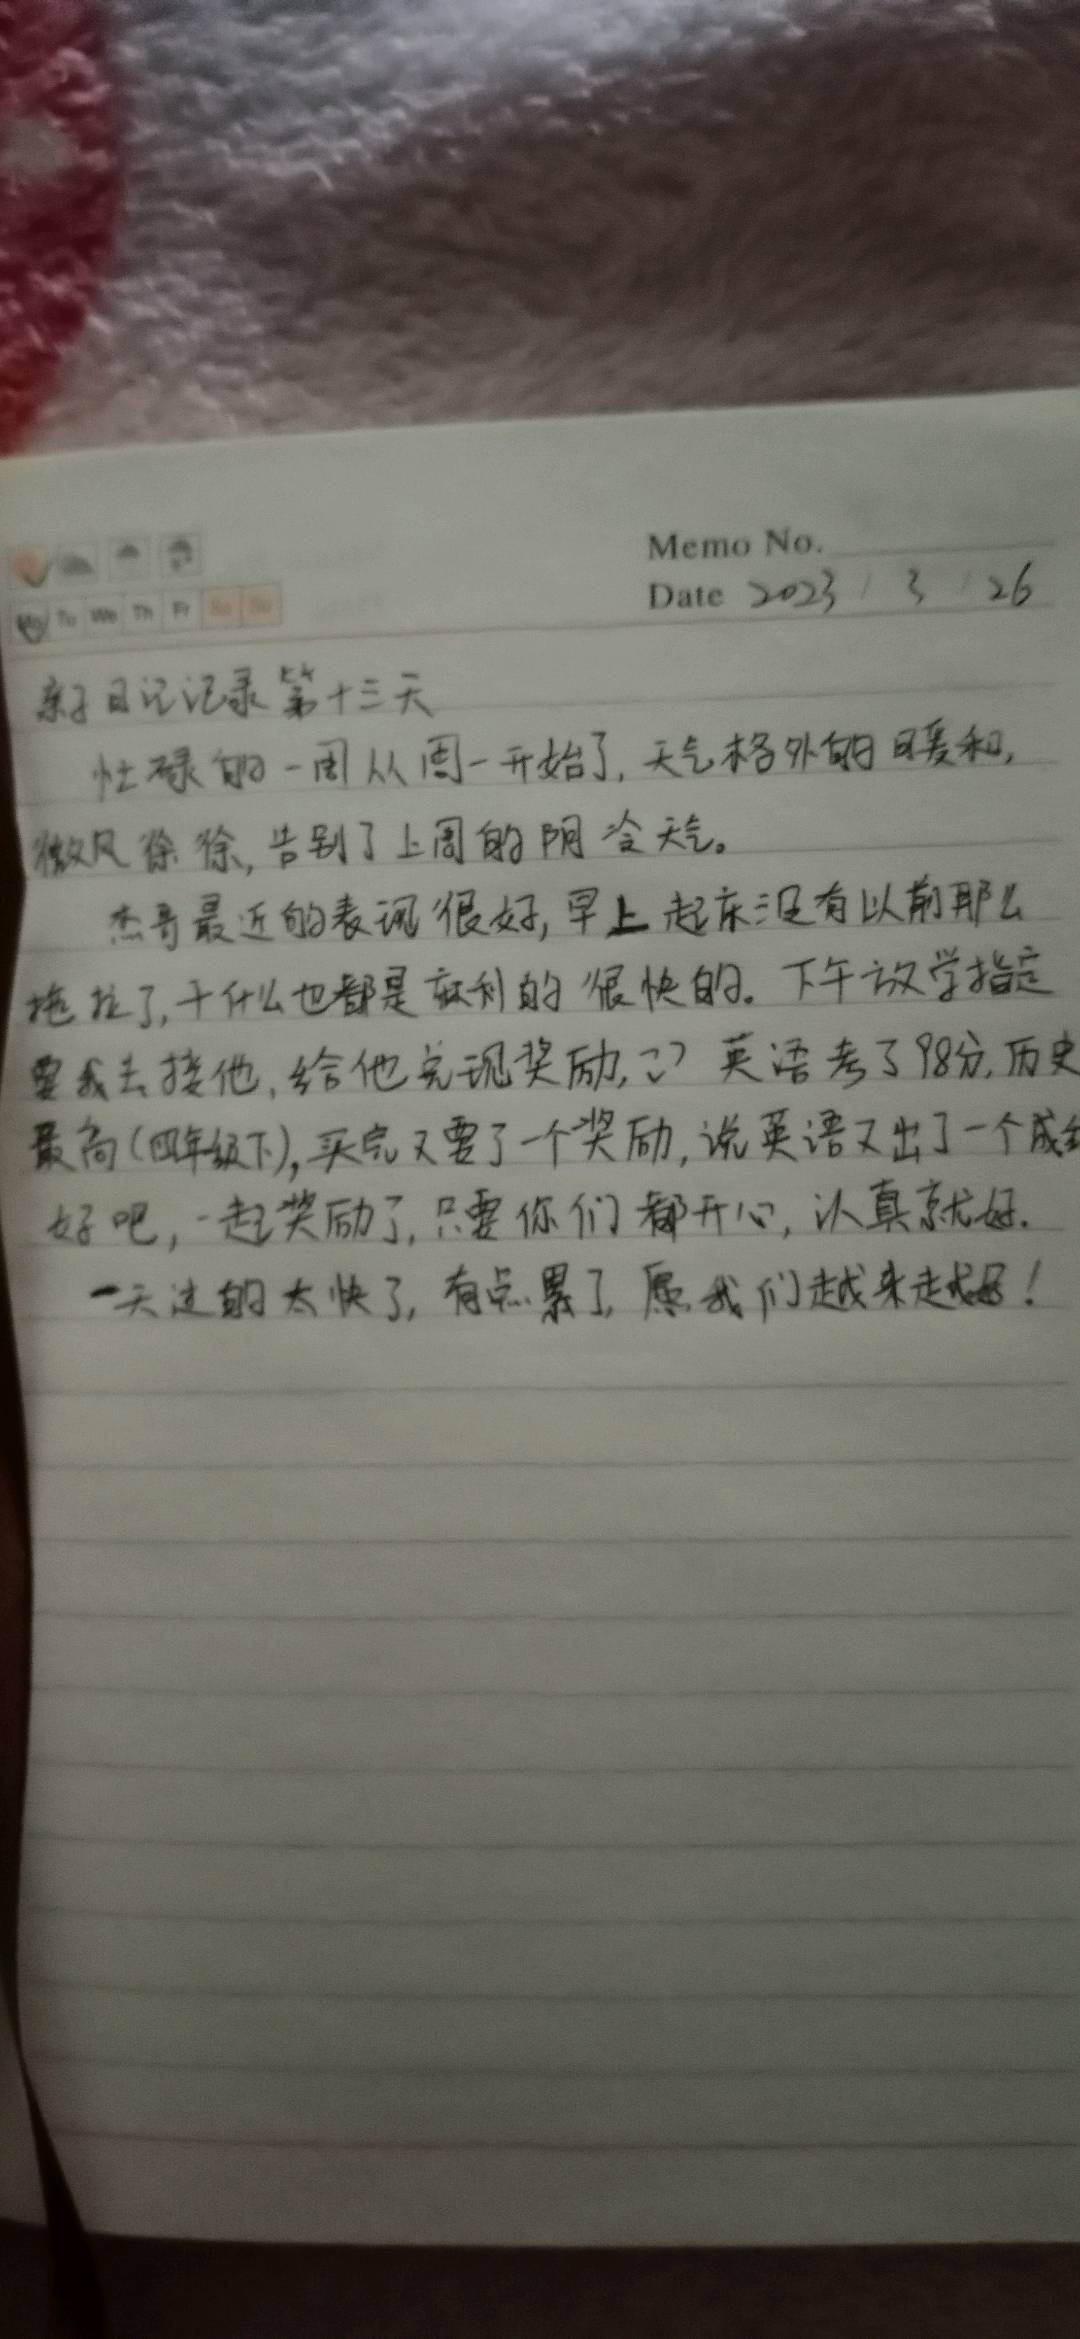 Memo No.
Mo Tu We Th Fr Sa Su
Date 2023 / 3 / 26
亲子日记记录第十三天
忙碌的一周从周一开始了,天气格外的暖和,
微风徐徐,告别了上周的阴冷天气。
杰哥最近的表现很好,早上起床没有以前那么
拖拉了,干什么也都是利的很快的。下午放学指定
要我去接他,给他兑现奖励,英语考了98分,历史
最高(四年级下),买完又要了一个奖励,说英语又出了一个成
好吧,一起奖励了,只要你们都开心,认真就好.
一天过的太快了,有点累了,愿我们越来越好!